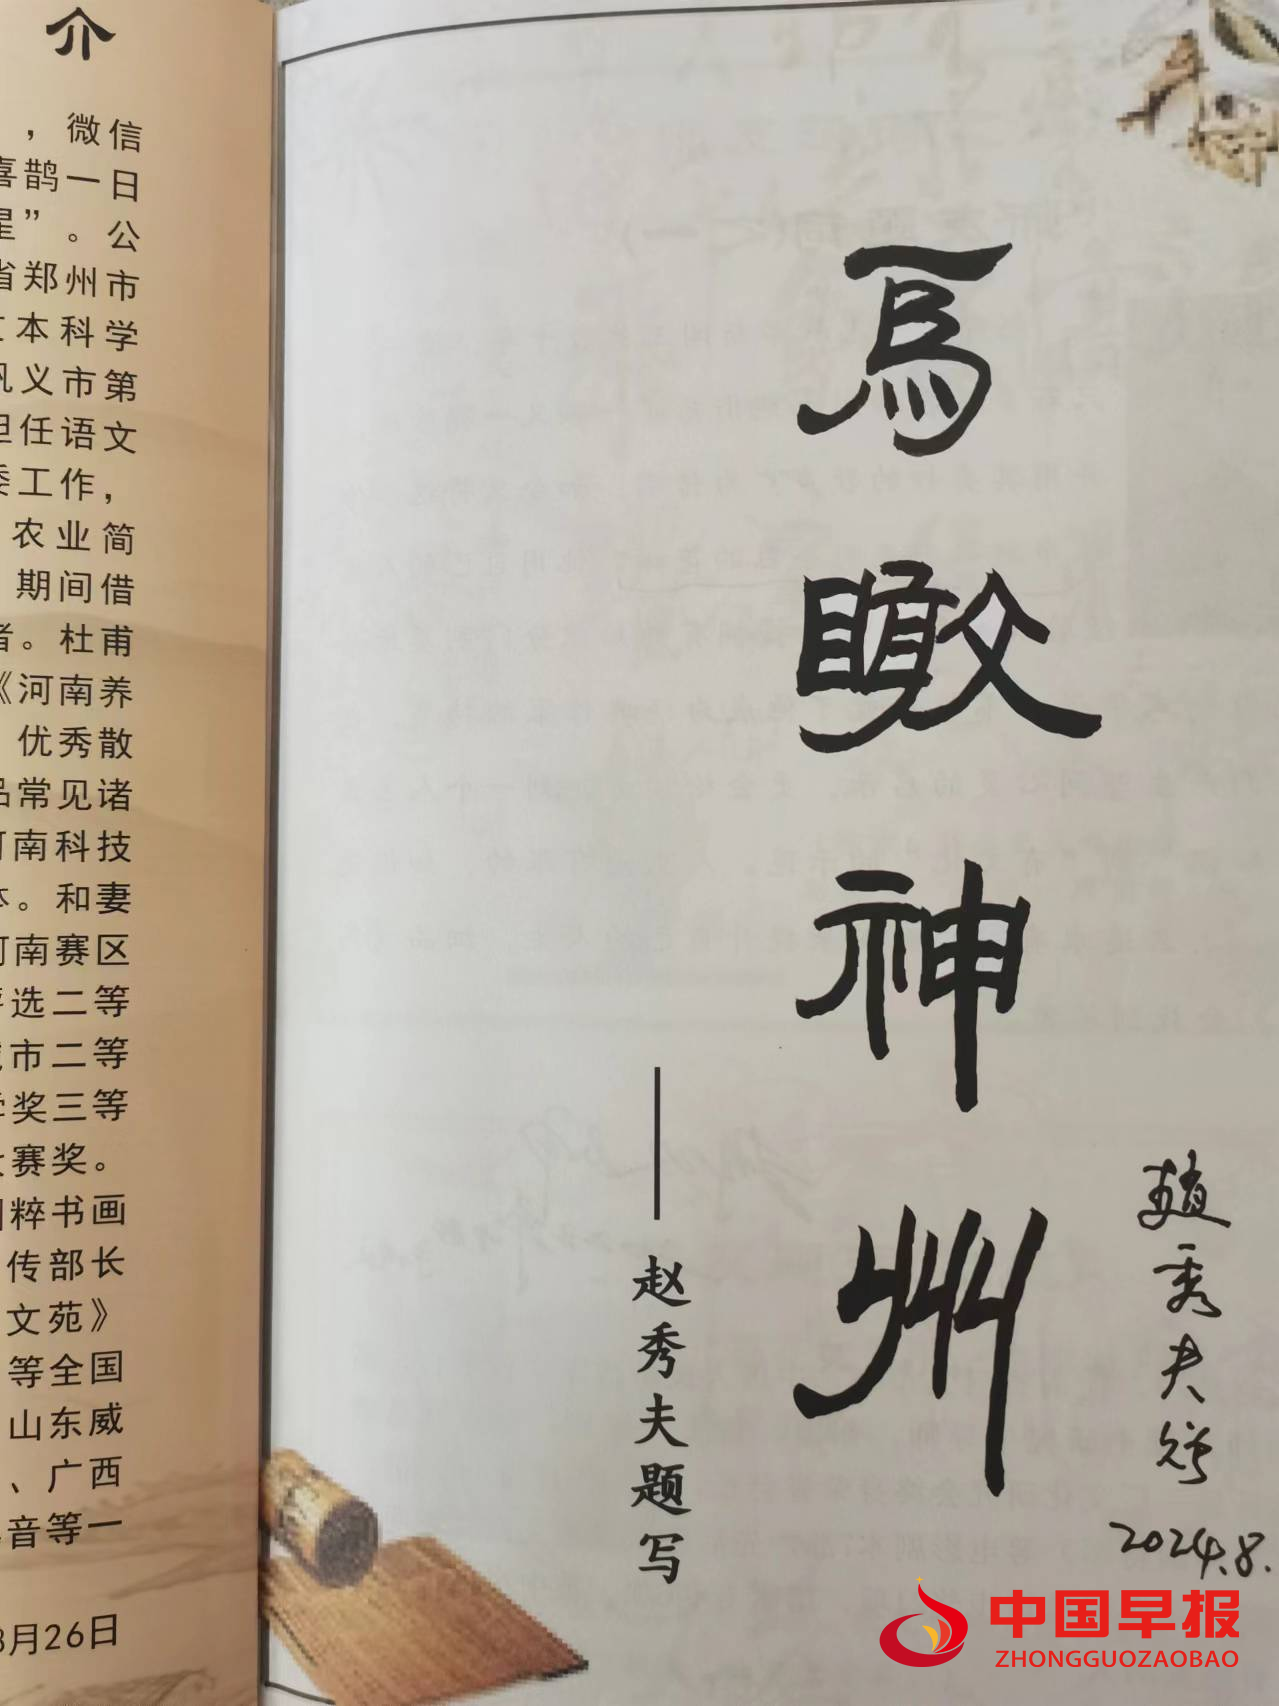 介
，微信
喜鹊一日
星”。公
省郑州市
本科学
巩义市第
担任语文
委工作，
农业简
期间借
者。杜甫
《河南养
优秀散
品常见诸
河南科技
体。和妻
河南赛区
评选二等
城市二等
学奖三等
赛奖。
国粹书画
传部长
文苑》
等全国
山东威
、广西
音等一
8月26日
鳥瞰神州
——赵秀夫题写
趙秀夫
2024.8.
中国早报
ZHONGGUOZAOBAO